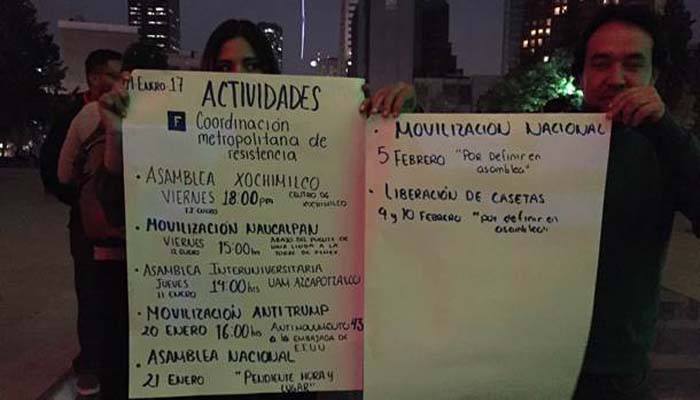 11 ENERO 17
ACTIVIDADES
F Coordinación
metropolitana de
resistencia
• ASAMBLEA XOCHIMILCO
VIERNES 18:00 pm CENTRO DE
12 ENERO XOCHIMILCO
• MOVILIZACIÓN NAUCALPAN
VIERNES 15:00 hrs ABAJO DEL PUENTE DE
12 ENERO A LA
TORRE DE PEMEX
• ASAMBLEA INTERUNIVERSITARIA
JUEVES 14:00 hrs UAM AZCAPOTZALCO
11 ENERO
• MOVILIZACIÓN ANTITRUMP
20 ENERO 16:00 hs ANTIMONUMENTO 43
a la EMBAJADA DE
E.E.U.U
• ASAMBLEA NACIONAL
21 ENERO "PENDIENTE HORA Y
LUGAR"
• MOVILIZACION NACIONAL
5 FEBRERO "POR DEFINIR EN
asamblea"
• LIBERACIÓN DE CASETAS
9 y 10 FEBRERO "por definir en
asamblea"